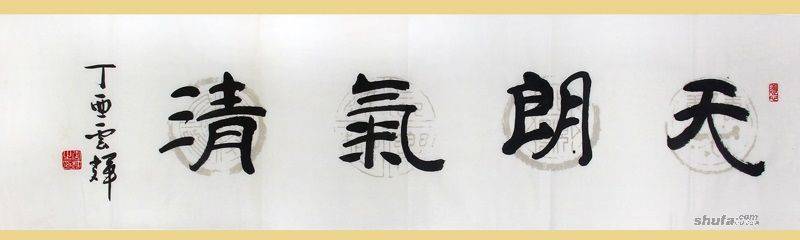 天朗氣清
丁酉雲輝
shufa.com